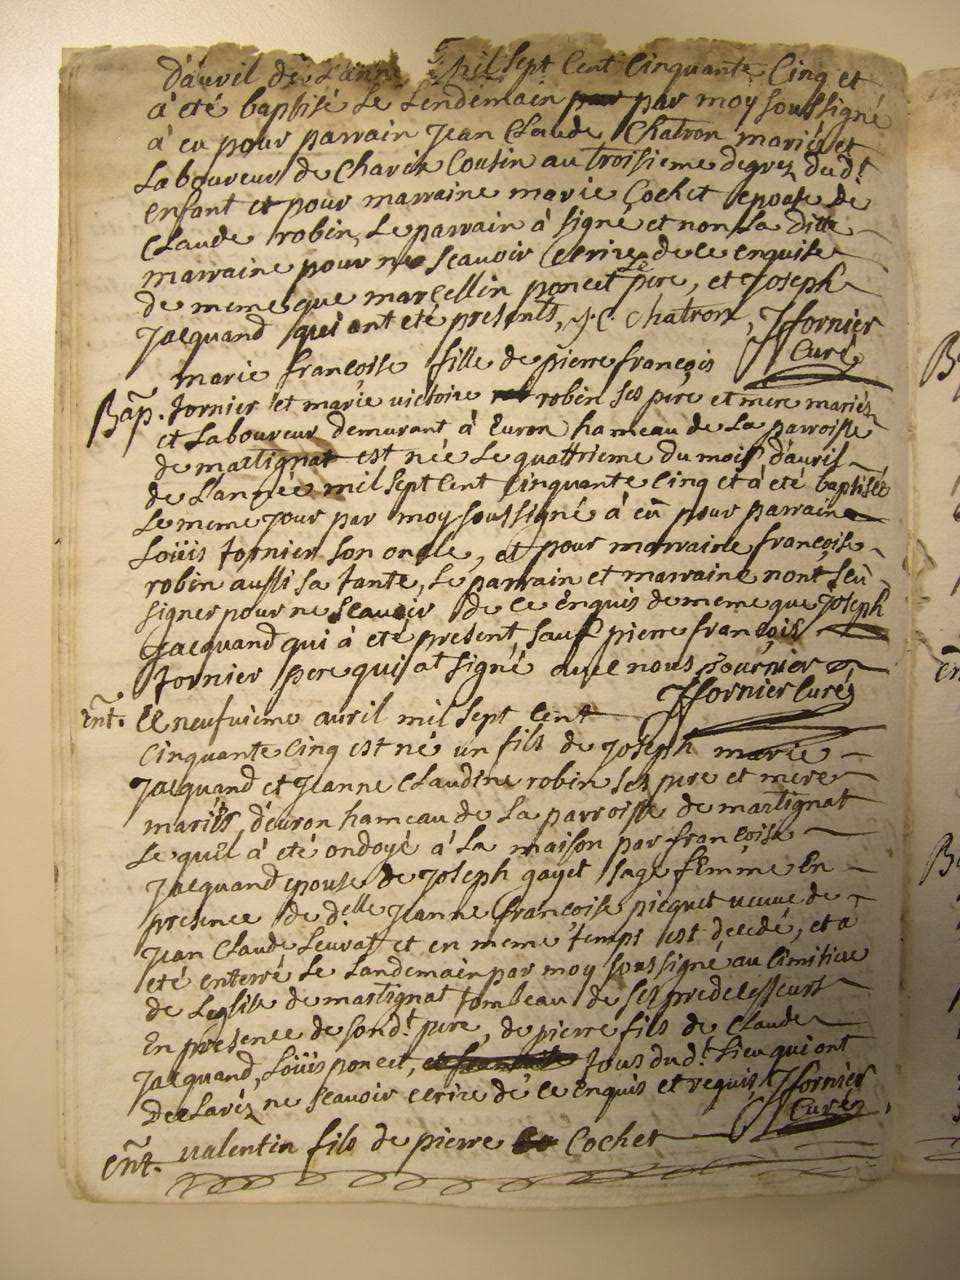 d'avril de l'année mil sept cent cinquante cinq et
à été baptisé le lendemain par moy soussigné
à eu pour parrain jean claude Chatron marié et
Laboureur de Charix Cousin au troisieme degrez dud.t
enfant et pour marraine marie Cochet epouse de
Claude robin, Le parrain à signé et non la ditte
marraine pour ne scavoir ecrire de ce enquise
de meme que marcellin poncet pere, et Joseph
Jacquand qui ont été presents, J.C. Chatron, J fornier
Curé
marie françoise fille de pierre françois
Bap. fornier et marie victoire robin ses pere et mere mariés
et Laboureur demurant à Euron hameau de La parroisse
de martignat est née Le quattrieme du mois d'avril
de L'année mil sept cent cinquante cinq et à été baptisée
Le meme jour par moy soussigné à eü pour parrain
Loüis fornier son oncle, et pour marraine françoise
robin aussi sa tante, Le parrain et marraine nont sçu
signer pour ne scavoir de ce enquis de meme que Joseph
Jacquand qui à eté present sauf pierre françois
fornier pere qui at signé avec nous fournier
J fornier Curé
ent. Le neufvieme avril mil sept cent
cinquante cinq est né un fils de joseph marie
Jacquand et jeanne Claudine robin ses pere et mere
mariés, d'euron hameau de La parroisse de martignat
Le quel à été ondoyé à La maison par françoise
Jacquand epouse de joseph gayet sage femme En
presence de delle jeanne françoise picquet veuve de
jean Claude Levrat et en meme temps est decedé, et a
eté enterré Le Landemain par moy soussigné au cimitiere
de Leglise de martignat tombeau de ses predecesseurs
En presence de sond.t pere, de pierre fils de Claude
Jacquand, Loüis poncet, tous dud.t Lieu qui ont
declaréz ne scavoir ecrire de ce enquis et requis J fornier
Curé
ent. valentin fils de pierre Cochet